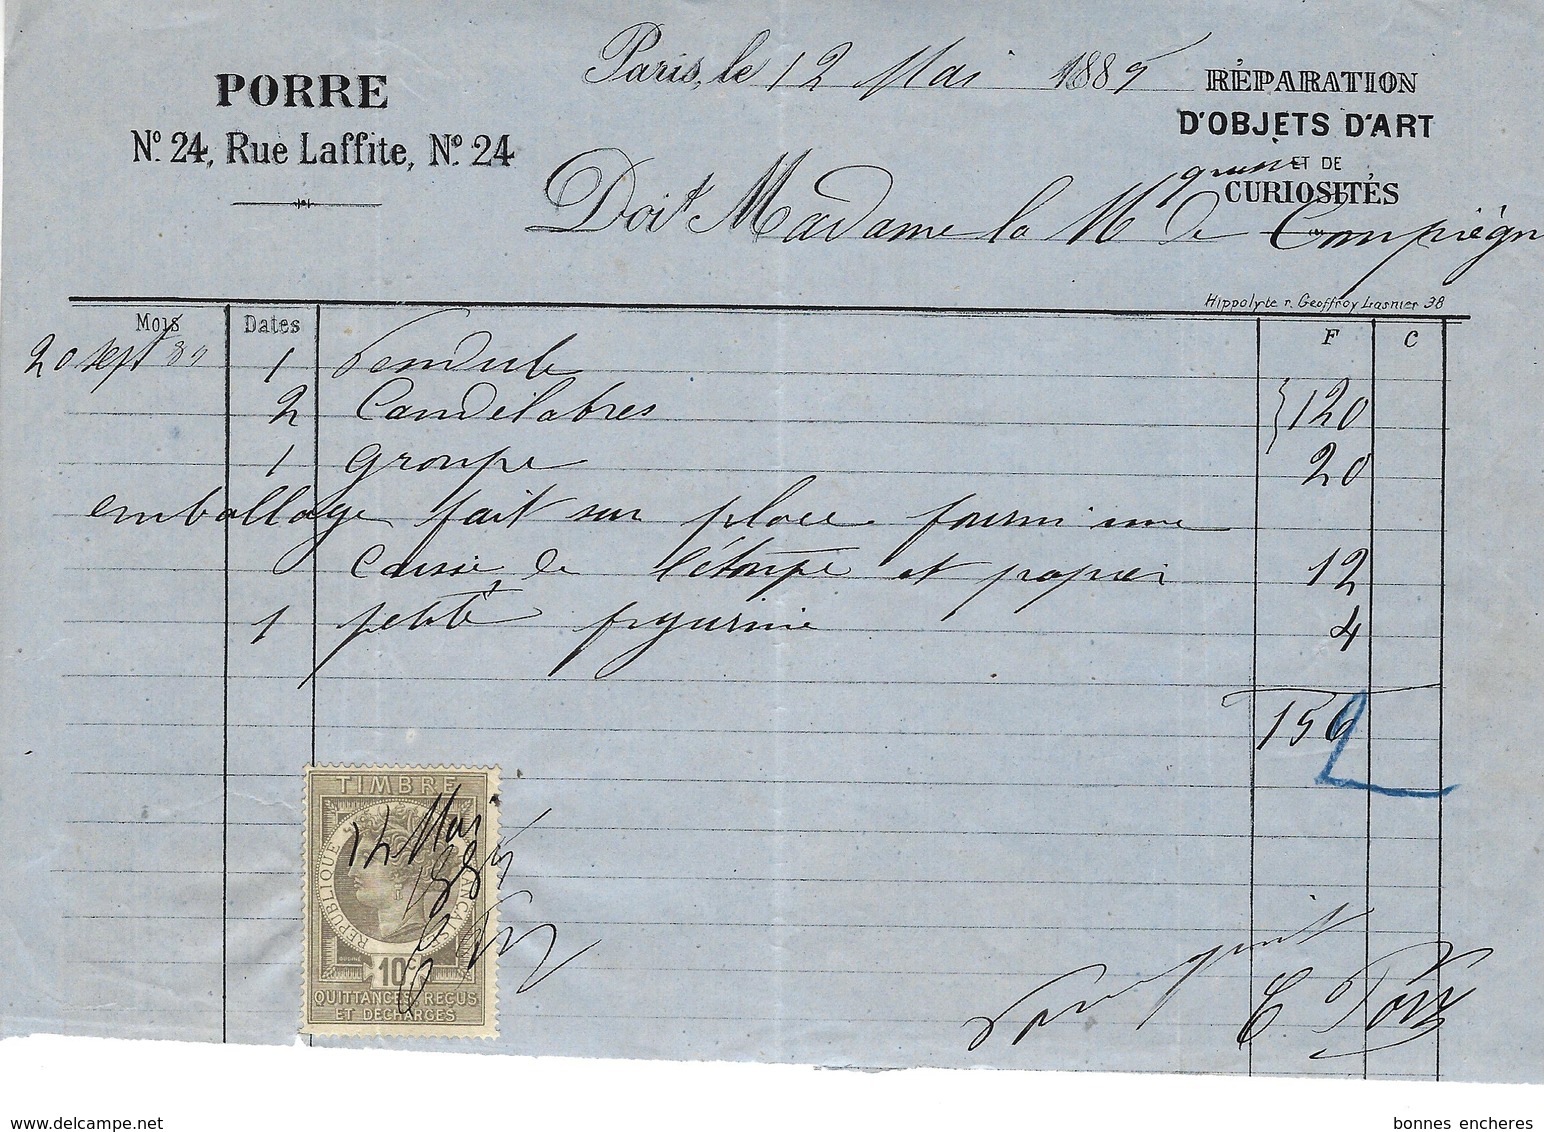 PORRE
Nº 24, Rue Laffite, Nº 24
Paris, le 12 Mai 1885
RÉPARATION
D'OBJETS D'ART
ET DE
CURIOSITÉS
Doit Madame la Mquise de Compiègn
Hippolyte r. Geoffroy Lasnier 38
Mois Dates F C
20 sept 1 Pendule
2 Candelabres 120
1 groupe 20
emballage fait sur place fourni une
Caisse de l'étoupe et papier 12
1 petite figurine 4
156
TIMBRE
RÉPUBLIQUE FRANÇAISE
12 Mai
1885
10 C
QUITTANCES, REÇUS
ET DÉCHARGES
Pour acquit
E Porre
delcampe.net
bonnes encheres